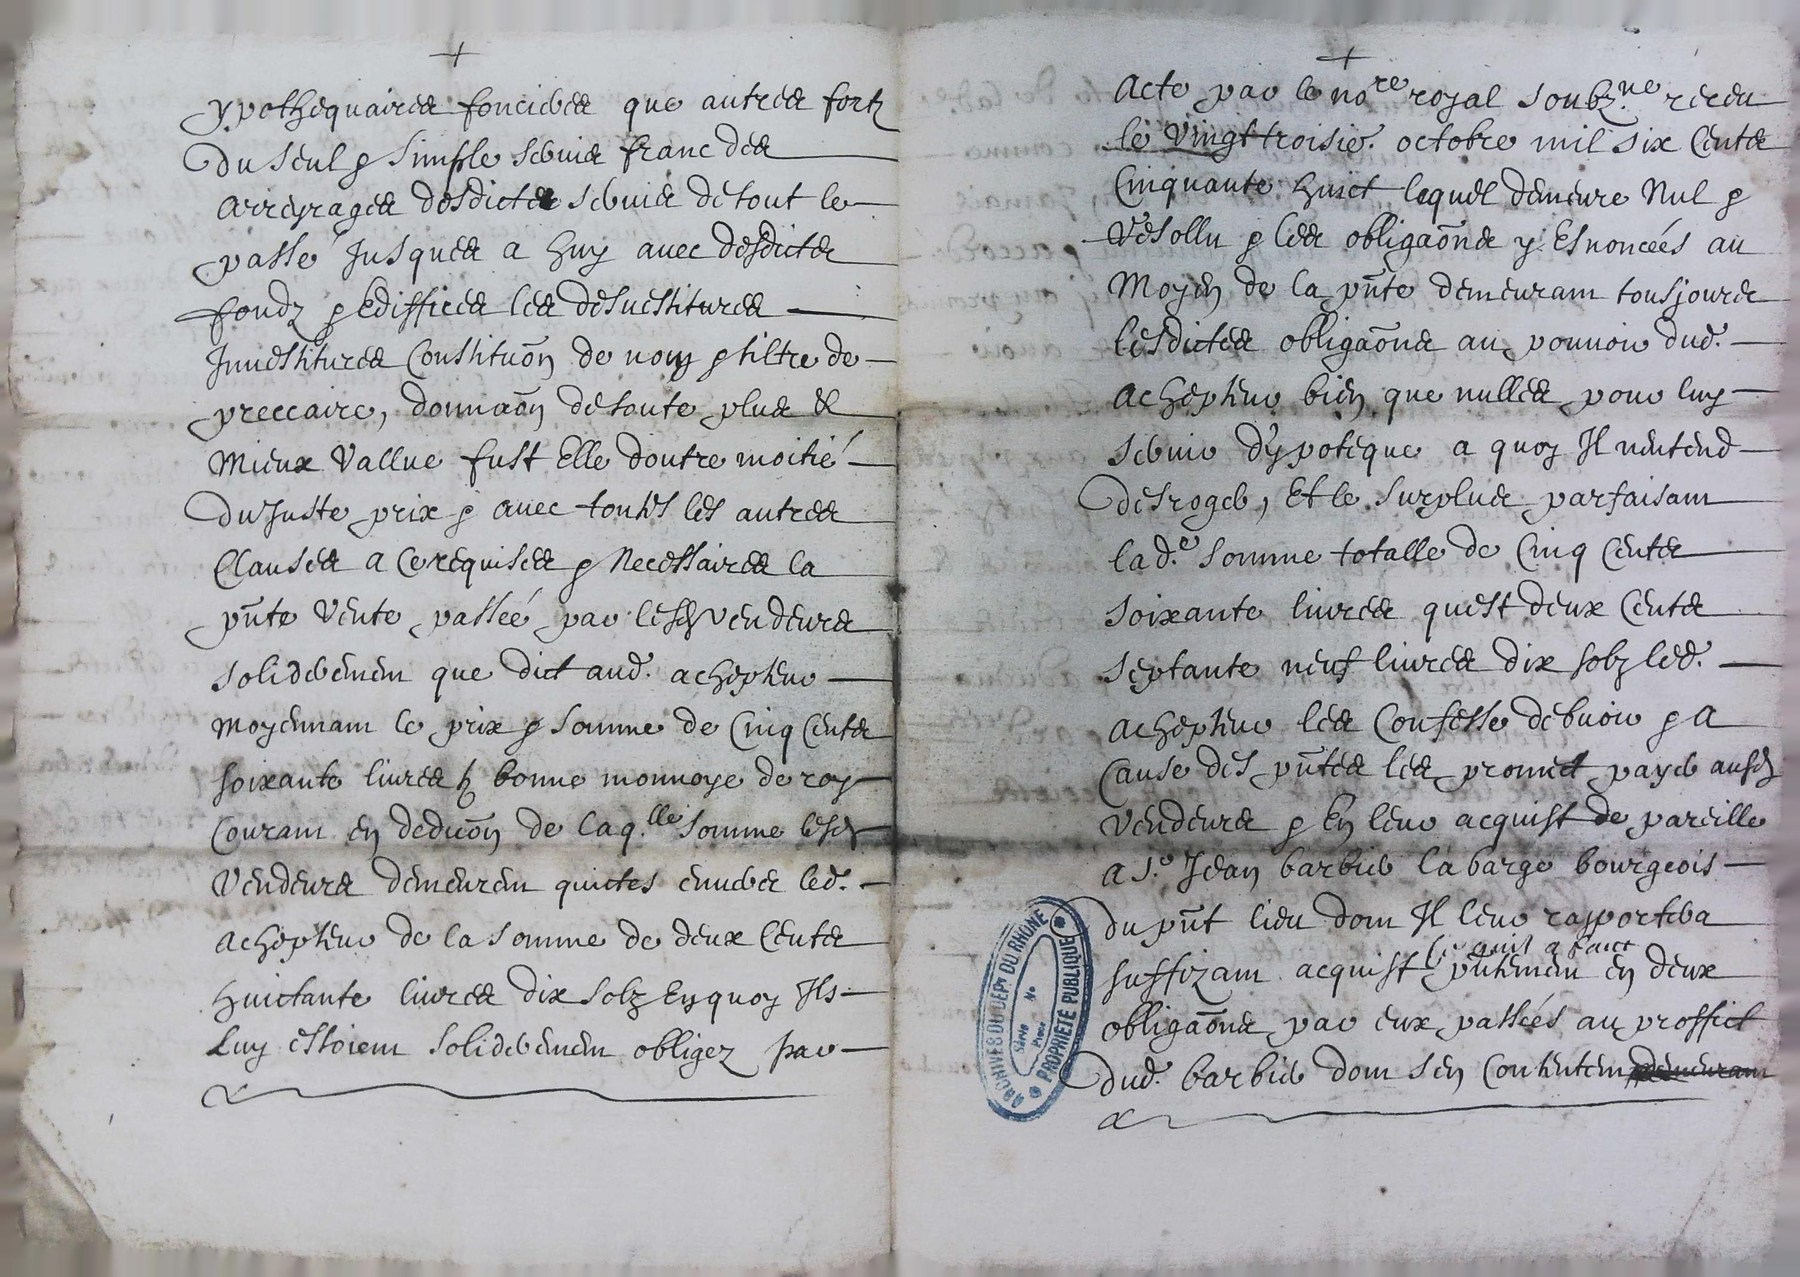 +
ypothequaires foncieres que autres fortz
du seul & simple servis franc des
arreyrages desdictes servis de tout le
passé Jusques a huy avec desdictes
fondz & Ediffices les desvestitures
Jnvestitures Constituôn de nom & tiltre de
preccaire, donnaôn de toute plus &
Mieux Vallue fust Elle doutre moitié
du Juste prix & avec touttes les autres
Clauses a ce requises & Necessaires la
pñte Vente passeé par lesd vendeurs
soliderement que dict aud. achepteur
moyennant le prix & somme de Cinq Cents
soixante livres bonne monnoye de roy
Courant en deduôn de laq.lle somme lesd
Vendeurs demeurent quictes envers led.
achepteur de la somme de deux Cents
huictante livres dix solz En quoy Jls
Luy estoient soliderement obligez par
+
Acte par le nore royal soubz.ne receu
le vingt troisie. octobre mil six Cents
Cinquante huict lequel demeure Nul &
resollu & les obligaôns y Esnonceés au
Moyen de la pñte demeurant tousjours
lesdictes obligaôns au pouvoir dud.
achepteur bien que nulles pour luy
servir d'ypoteque a quoy Jl n'entend
desroger, Et le surplus parfaisant
lad.e somme totalle de Cinq Cents
soixante livres quest deux Cents
septante neuf livres dix solz led.
achepteur les Confesse debvoir & a
Cause des pñtes les promet payer ausd
vendeurs & En leur acquist de pareille
a s.r Jean barbier labarge bourgeois
du pñt lieu dont Jl leur rapportera
suffizant acquist
Ce quil a faict
pñtement en deux
obligaôns par eux passées au proffict
dud. barbier dont sen Contentent demeurant
ARCHIVES DU DEPT DU RHÔNE
PROPRIÉTÉ PUBLIQUE
Série No
Pièce